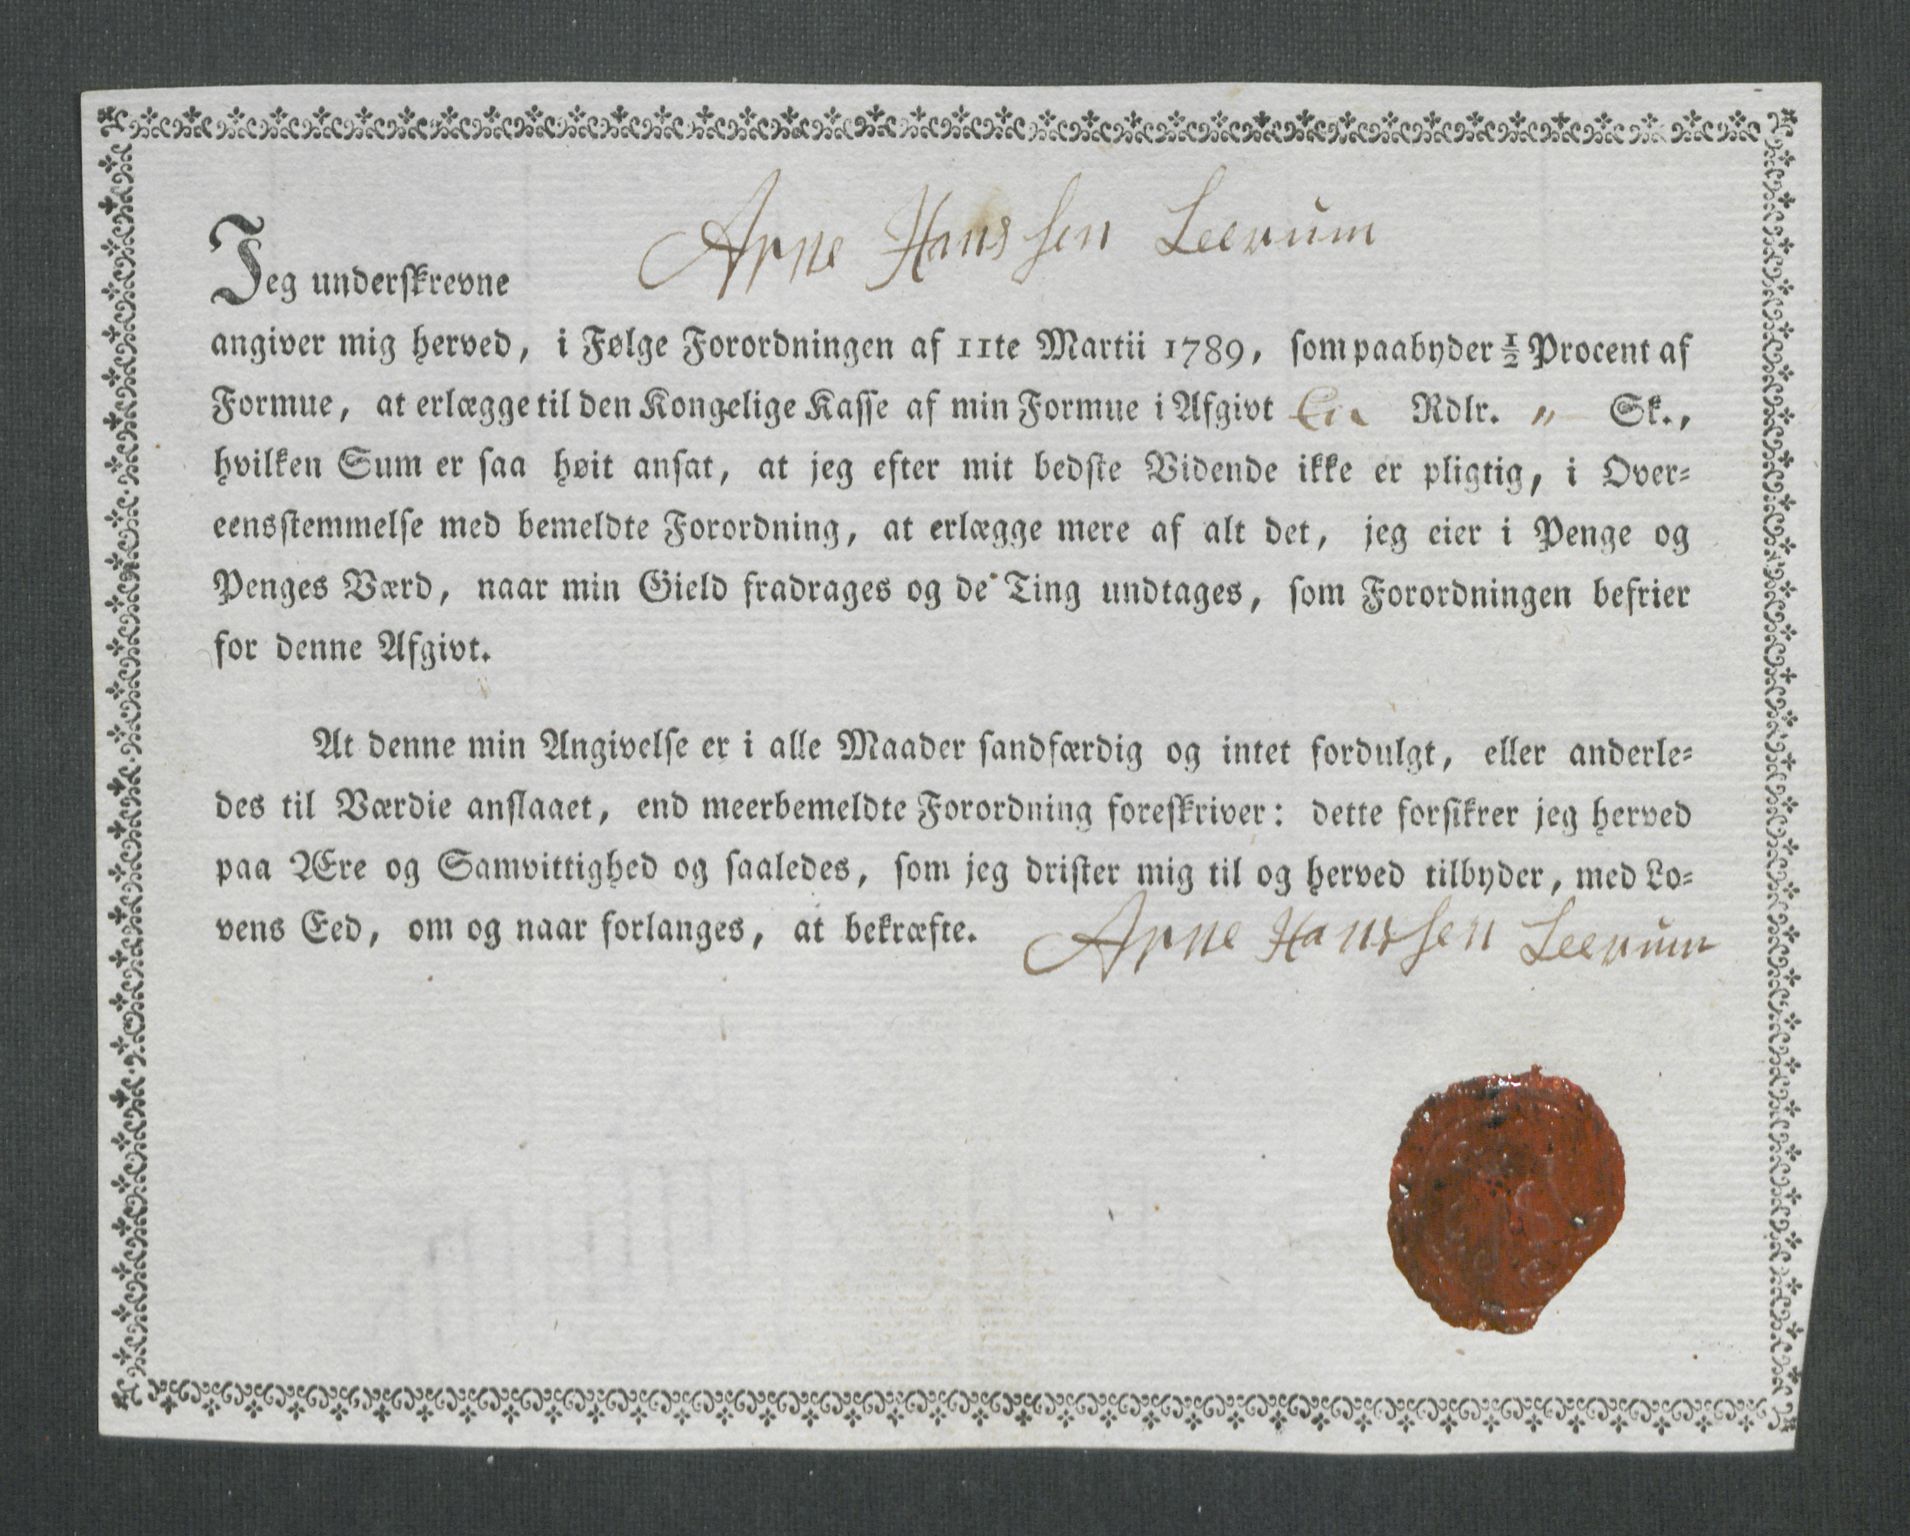 Arne Hanssen Leerum
Jeg underskrevne
angiver mig herved, i Følge Forordningen af 11te Martii 1789, som paabyder ½ Procent af
Formue, at erlægge til den Kongelige Kasse af min Formue i Afgivt Rdlr. " Sk.,
hvilken Sum er saa høit ansat, at jeg efter mit bedste Vidende ikke er pligtig, i Over=
eensstemmelse med bemeldte Forordning, at erlægge mere af alt det, jeg eier i Penge og
Penges Værd, naar min Gield fradrages og de Ting undtages, som Forordningen befrier
for denne Afgivt.
At denne min Angivelse er i alle Maader sandfærdig og intet fordulgt, eller anderle=
des til Værdie anslaaet, end meerbemeldte Forordning foreskriver: dette forsikrer jeg herved
paa Ære og Samvittighed og saaledes, som jeg drister mig til og herved tilbyder, med Lo=
vens Eed, om og naar forlanges, at bekræfte. Arne Hanssen Leerum